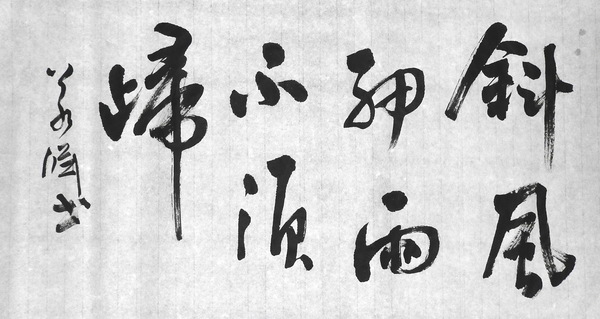 斜風
細雨
不須
歸
書